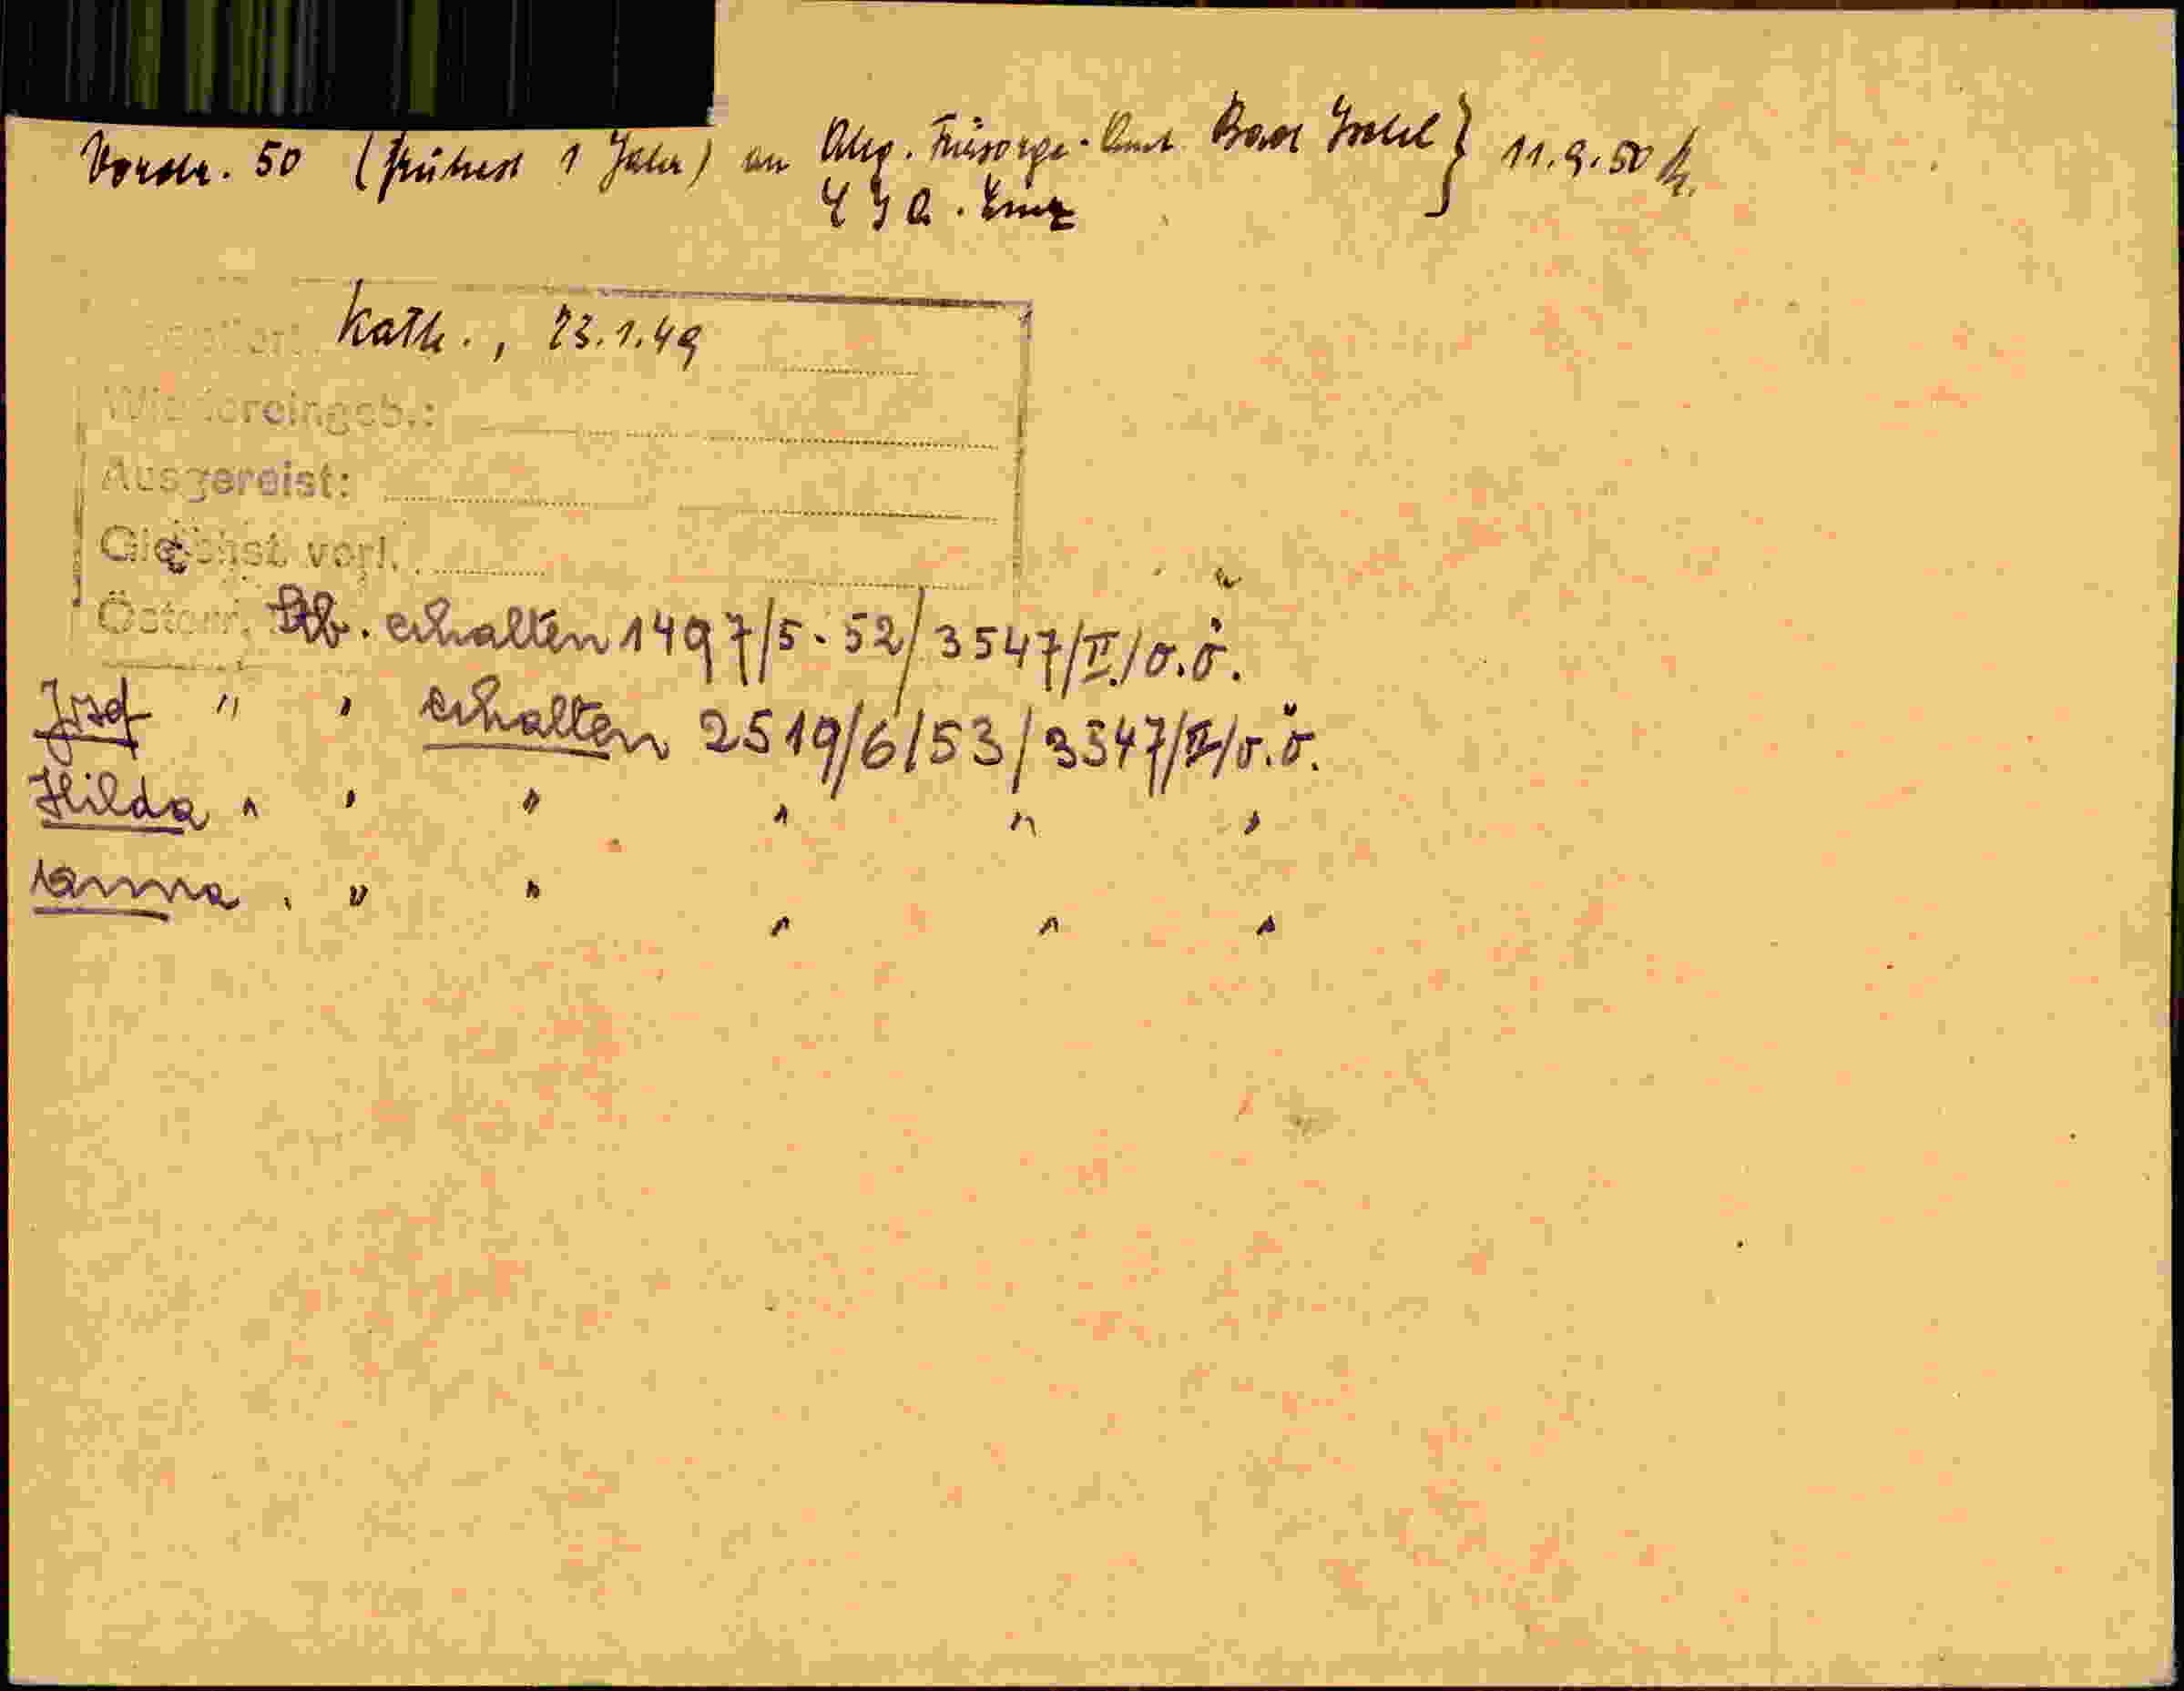 Vordr. 50 (frühest 1 Jahr) an Abg. Fürsorge-Amt Bad Ischl } 11.9.50
L J A. Linz
Kath., 23.1.49
Wiedereingeb.:
Ausgereist:
Gleichst. verl.
Österr. Stb. erhalten 1497/5-52/3547/II/o.ö.
Josef " " erhalten 2519/6/53/3347/II/o.ö.
Hilda " " " " " "
Hanna " " " " " "